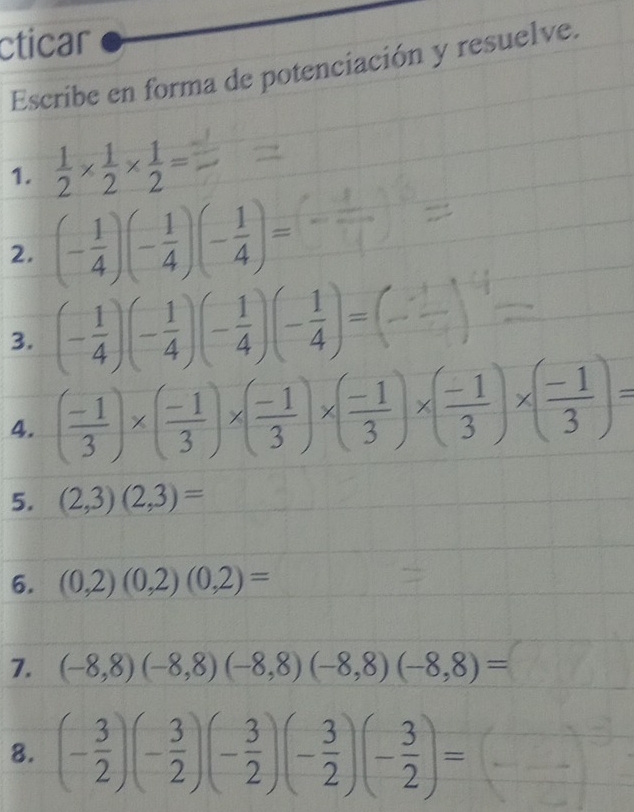 cticar
Escribe en forma de potenciación y resuelve.
1. 1/2 × 1/2 × 1/2 =
2. (-1/4)(-1/4)(-1/4) =
3. (-1/4)(-1/4)(-1/4)(-1/4) =
4. (-1/3) × (-1/3) × (-1/3) × (-1/3) × (-1/3) × (-1/3) =
5. (2,3) (2,3) =
6. (0,2) (0,2) (0,2) =
7. (-8,8) (-8,8) (-8,8) (-8,8) (-8,8) =
8. (-3/2)(-3/2)(-3/2)(-3/2)(-3/2) =